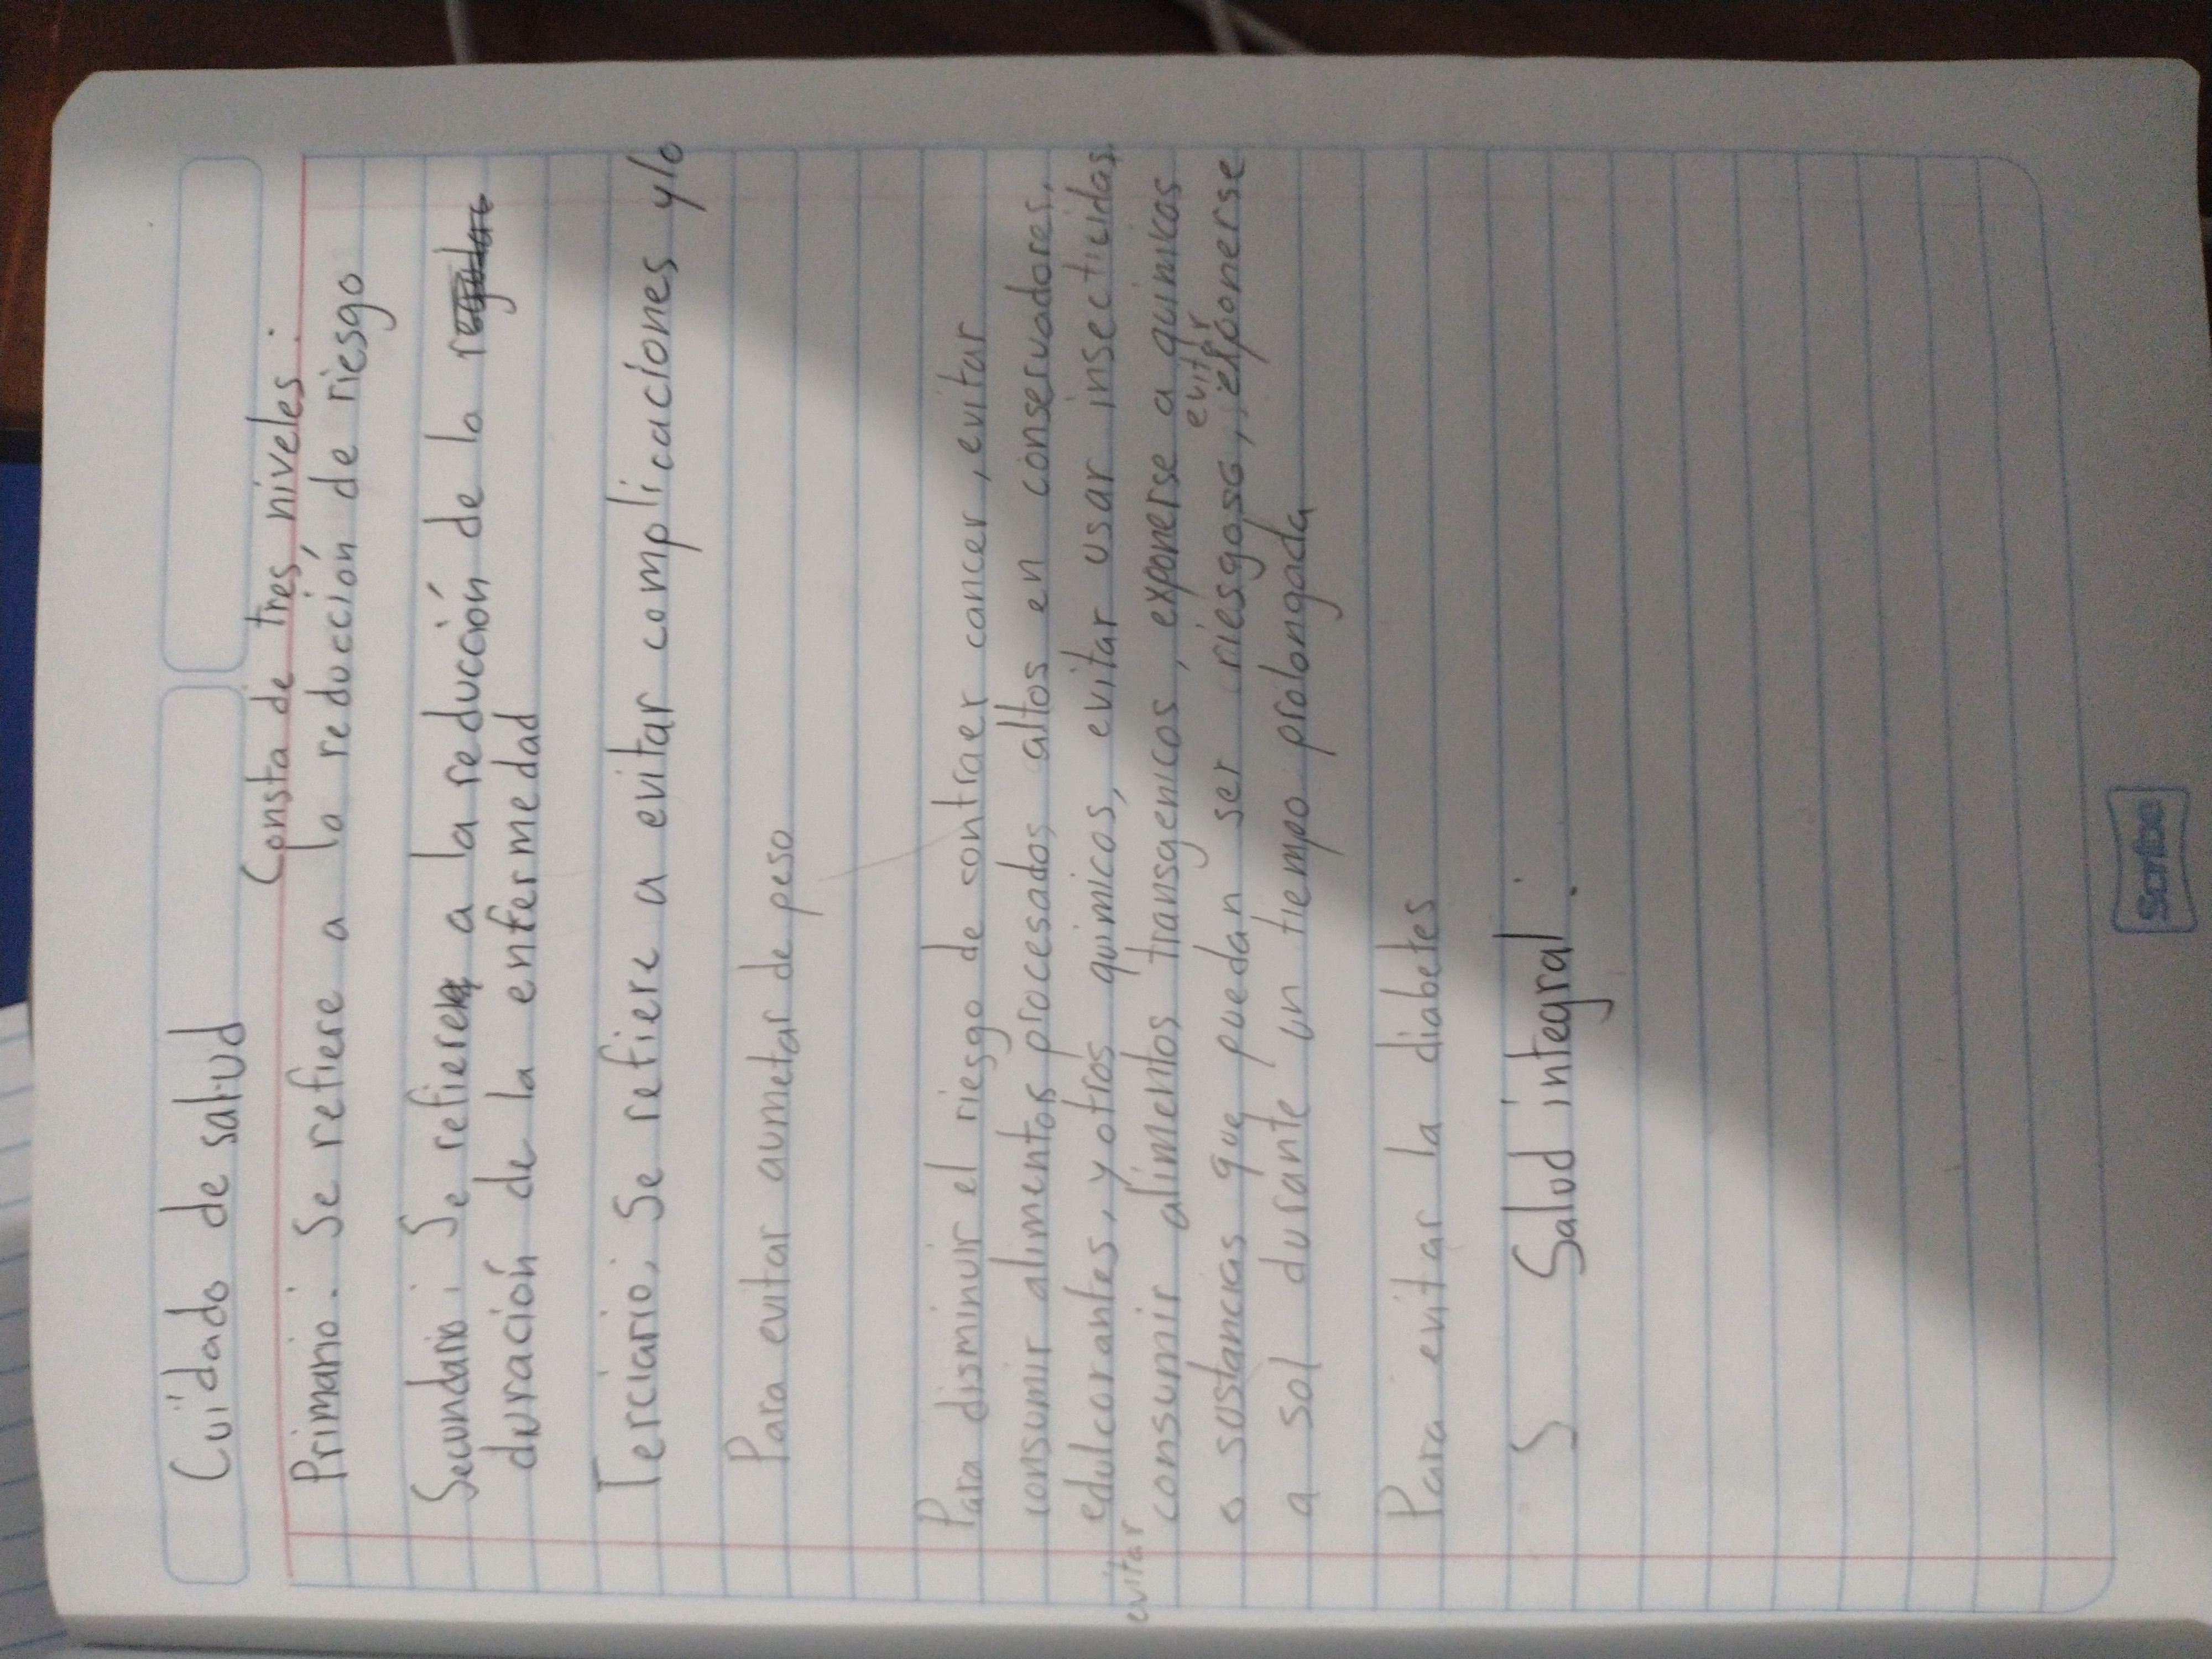 Cuidado de salud
Consta de tres niveles:
Primario: Se refiere a la reducción de riesgo
Secundario: Se refiere a la reducción de la
duración de la enfermedad
Terciario: Se refiere a evitar complicaciones y/o
Para evitar aumetar de peso
Para disminuir el riesgo de contraer cancer, evitar
consumir alimentos procesados altos en conservadores,
edulcorantes, y otros quimicos, evitar usar insecticidas,
evitar consumir alimentos transgenicos, exponerse a quimicos
o sustancias que puedan ser riesgosa, evitar exponerse
a sol durante un tiempo prolongada
Para evitar la diabetes
S Salud integral:
Scribe